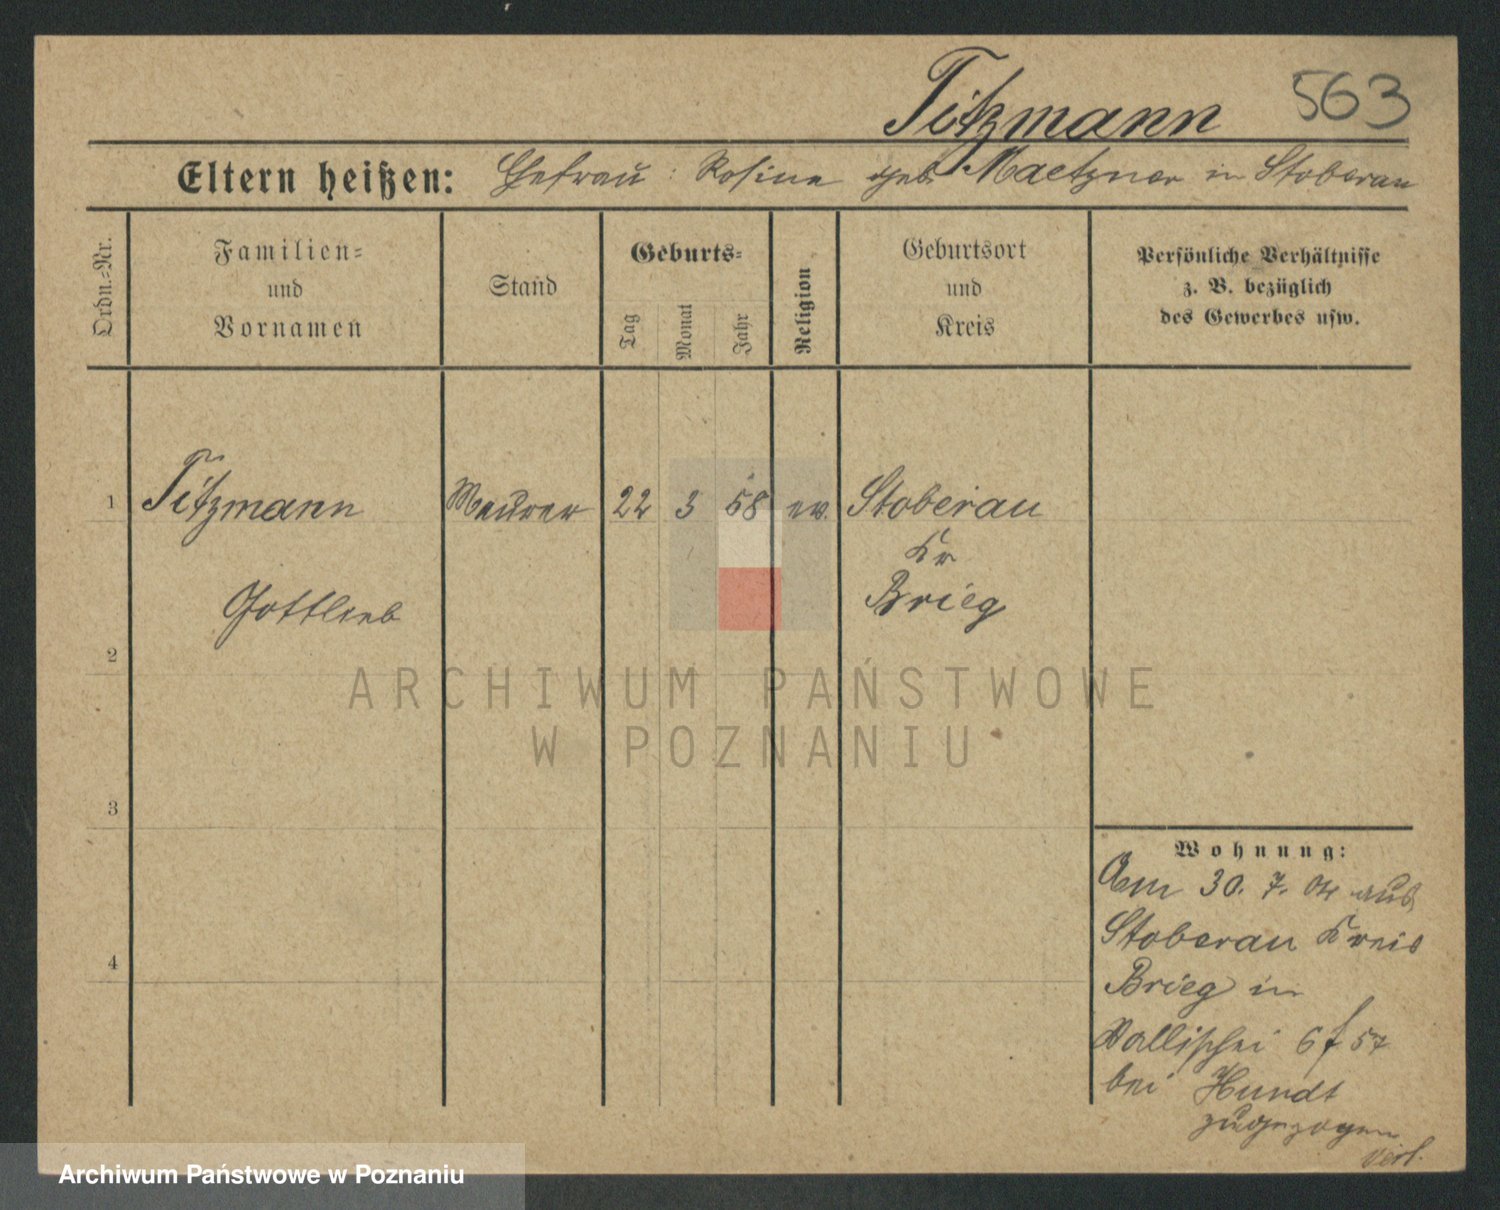 Titzmann 563
Eltern heißen: Ehefrau: Rosine geb. Maetzner in Stoberau
Ordn.=Nr.
Familien=
und
Vornamen
Stand
Geburts=
Tag
Monat
Jahr
Religion
Geburtsort
und
Kreis
Persönliche Verhältnisse
z. B. bezüglich
des Gewerbes usw.
1 Titzmann Maurer 22 3 58 ev. Stoberau
Kr
Gottlieb Brieg
2
ARCHIWUM PAŃSTWOWE
W POZNANIU
3
Wohnung:
Am 30. 7. 04 aus
Stoberau Kreis
4
Brieg in
Wallischei 57
bei Hundt
zugezogen
Archiwum Państwowe w Poznaniu